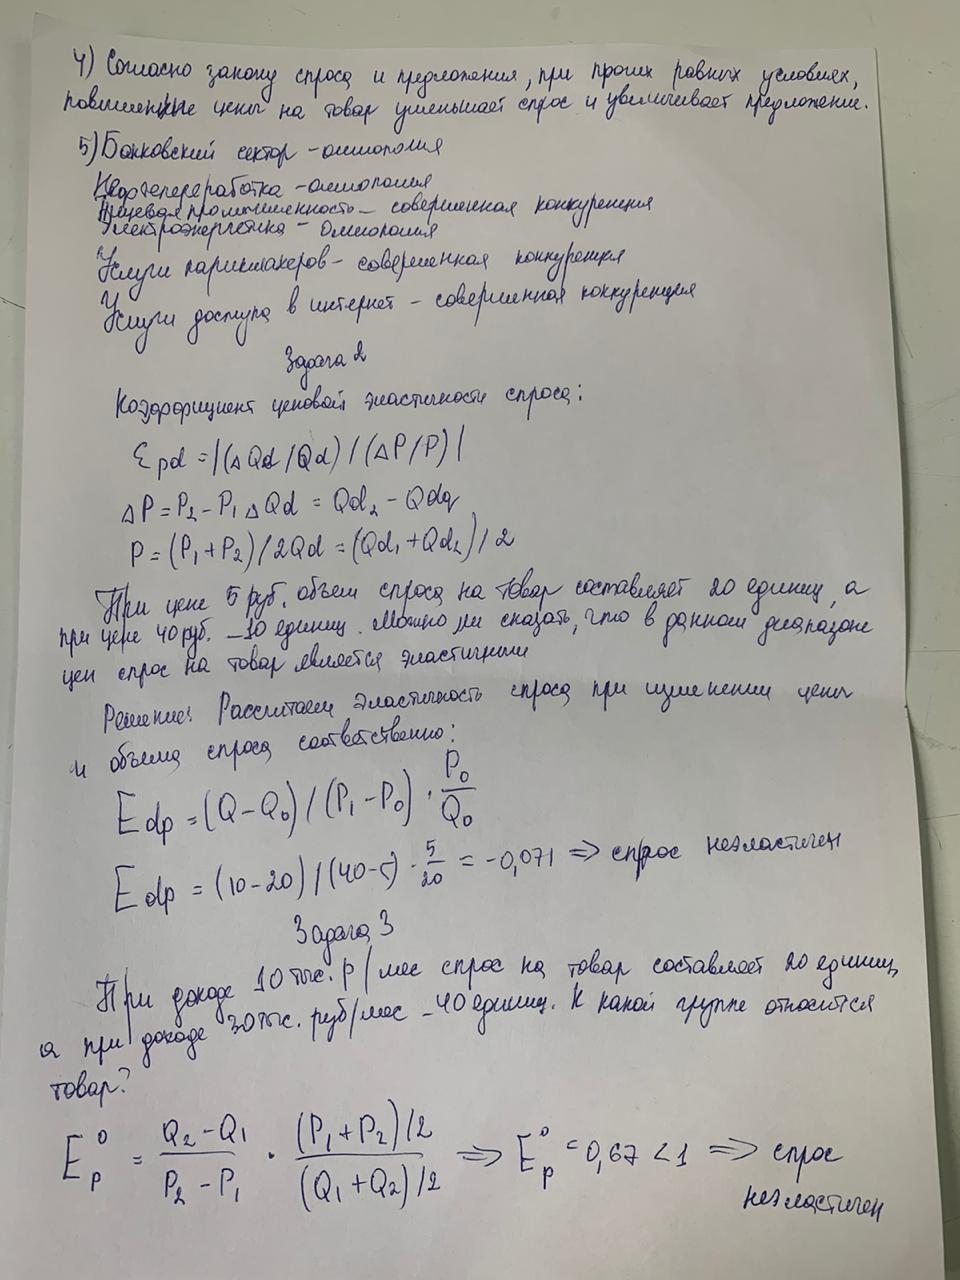 4) Согласно закону спроса и предложения, при прочих равных условиях,
повышенные цены на товар уменьшает спрос и увеличивает предложение.
5) Банковский сектор - олигополия
Нефтепереработка - олигополия
Пищевая промышленность - совершенная конкуренция
Электроэнергетика - олигополия
Услуги парикмахеров - совершенная конкуренция
Услуги доступа в интернет - совершенная конкуренция
Задача 2
Коэффициент ценовой эластичности спроса:
Epd = |(ΔQd/Qd) / (ΔP/P)|
ΔP = P2 - P1 ΔQd = Qd2 - Qdq
P = (P1 + P2)/2Qd = (Qd1 + Qd2)/2
При цене 5 руб. объем спроса на товар составляет 20 единиц, а
при цене 40 руб. - 10 единиц. Можно ли сказать, что в данном диапазоне
цен спрос на товар является эластичным
Решение: Рассчитаем эластичность спроса при изменении цены
и объема спроса соответственно:
Edp = (Q - Q0) / (P1 - P0) · P0/Q0
Edp = (10-20) / (40-5) · 5/20 = -0,071 => спрос неэластичен
Задача 3
При доходе 10 тыс. р/мес спрос на товар составляет 20 единиц,
а при доходе 30 тыс. руб/мес - 40 единиц. К какой группе относится
товар?
E_p^0 = (Q2 - Q1)/(P2 - P1) · ((P1 + P2)/2)/((Q1 + Q2)/2) => E_p^0 = 0,67 < 1 => спрос
неэластичен